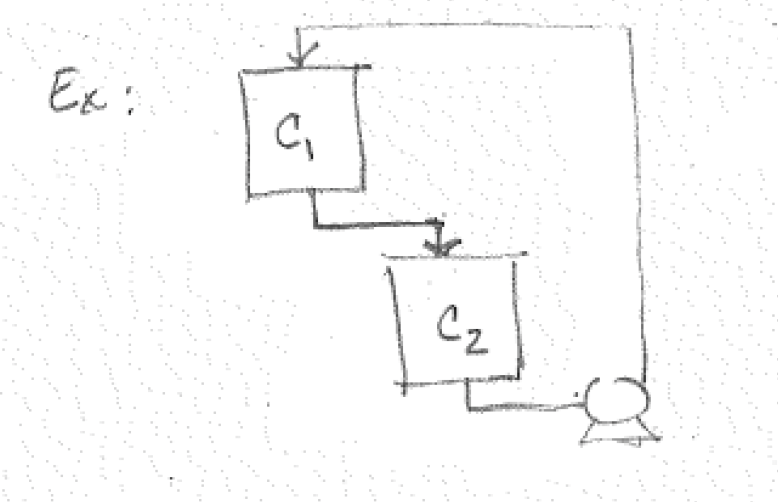 Ex:
C₁
C₂